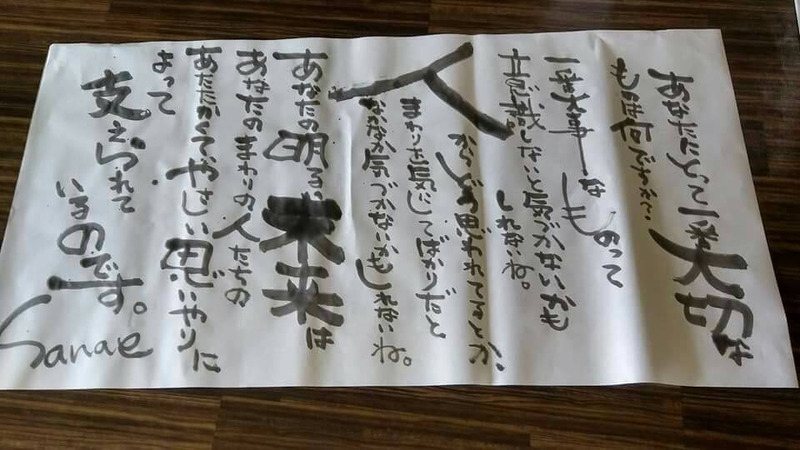 あなたにとって一番大切な
ものは何ですか?
一番大事なものって
意識しないと気づかないかも
しれないね。
人
からどう思われてるとか、
まわりを気にしてばかりだと
なかなか気づかないかもしれないね。
あなたの明るい未来は
あなたのまわりの人たちの
あたたかくてやさしい思いやりに
よって
支えられて
いるのです。
Sanae